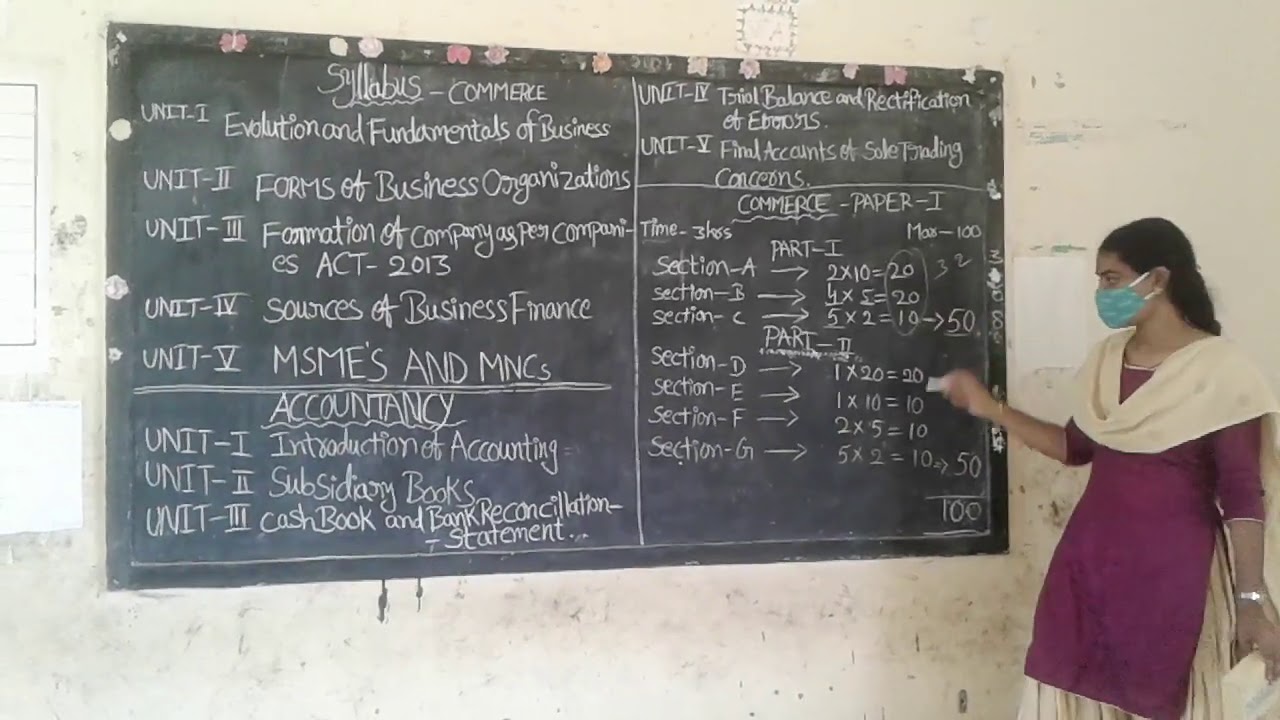 Syllabus - COMMERCE
UNIT-I Evolution and Fundamentals of Business
UNIT-II FORMS of Business Organizations
UNIT-III Formation of Company as per Compani-
es ACT-2013
UNIT-IV Sources of Business Finance
UNIT-V MSME'S AND MNCs
ACCOUNTANCY
UNIT-I Introduction of Accounting
UNIT-II Subsidiary Books
UNIT-III Cash Book and Bank Reconcillation-
-Statement...
UNIT-IV Trial Balance and Rectification
of Errors.
UNIT-V Final Accounts of Sole Trading
Concerns.
COMMERCE - PAPER-I
Time-3hrs Max-100
PART-I
Section-A → 2×10=20 32
Section-B → 4×5=20
Section-C → 5×2=10→50.
PART-II
Section-D → 1×20=20
Section-E → 1×10=10
Section-F → 2×5=10
Section-G → 5×2=10→50
100